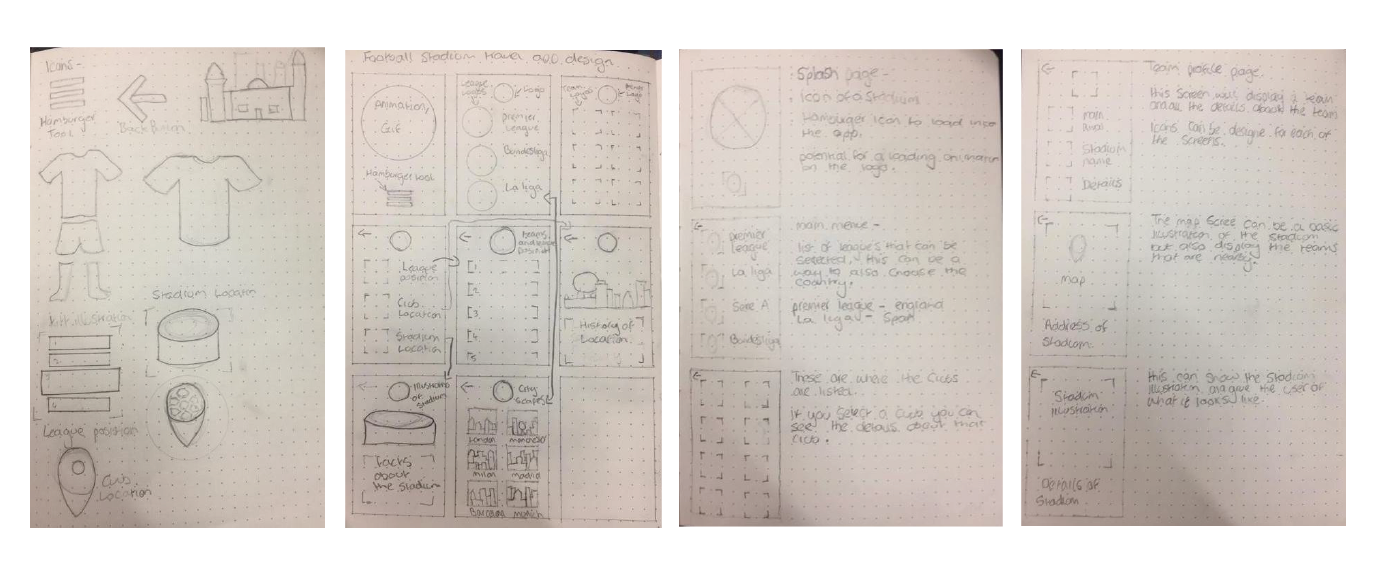 Icons -
Hamburger
Tool
Back Button
Kitt illustration
Stadium Locator
League position
Club
Location
Football Stadium travel app design
Animation/
Gif
Hamburger tool
League
Logo
premier
league
Bundesliga
La liga
League
position
Club
Location
Stadium
Location
Teams
and league
position
1.
2.
3
4.
5
History of
Location.
illustration
of
stadium
Facts
about
the Stadium
City
Scapes
London
Milan
madrid
munich
Splash page -
Icon of a Stadium
Hamburger icon to load into
the app.
potential for a loading animation
on the logo.
premier
league
La liga
Serie A
Bundesliga
main menue -
list of leagues that can be
selected, this can be a
way to also choose the
country.
premier league - england
La liga - Spain
These are where the Clubs
are listed.
If you select a club you can
see the details about that
club.
Team profile page.
this Screen will display a team
and all the details about the team
Icons can be designe for each of
the Screens.
Stadium
name
Details
The map Scree can be a basic
illustration of the Stadium
but also display the teams
that are nearby.
map
Address of
Stadium.
this can show the Stadium
illustration and give the user of
what it looks like.
Stadium
illustration
Details of
Stadium